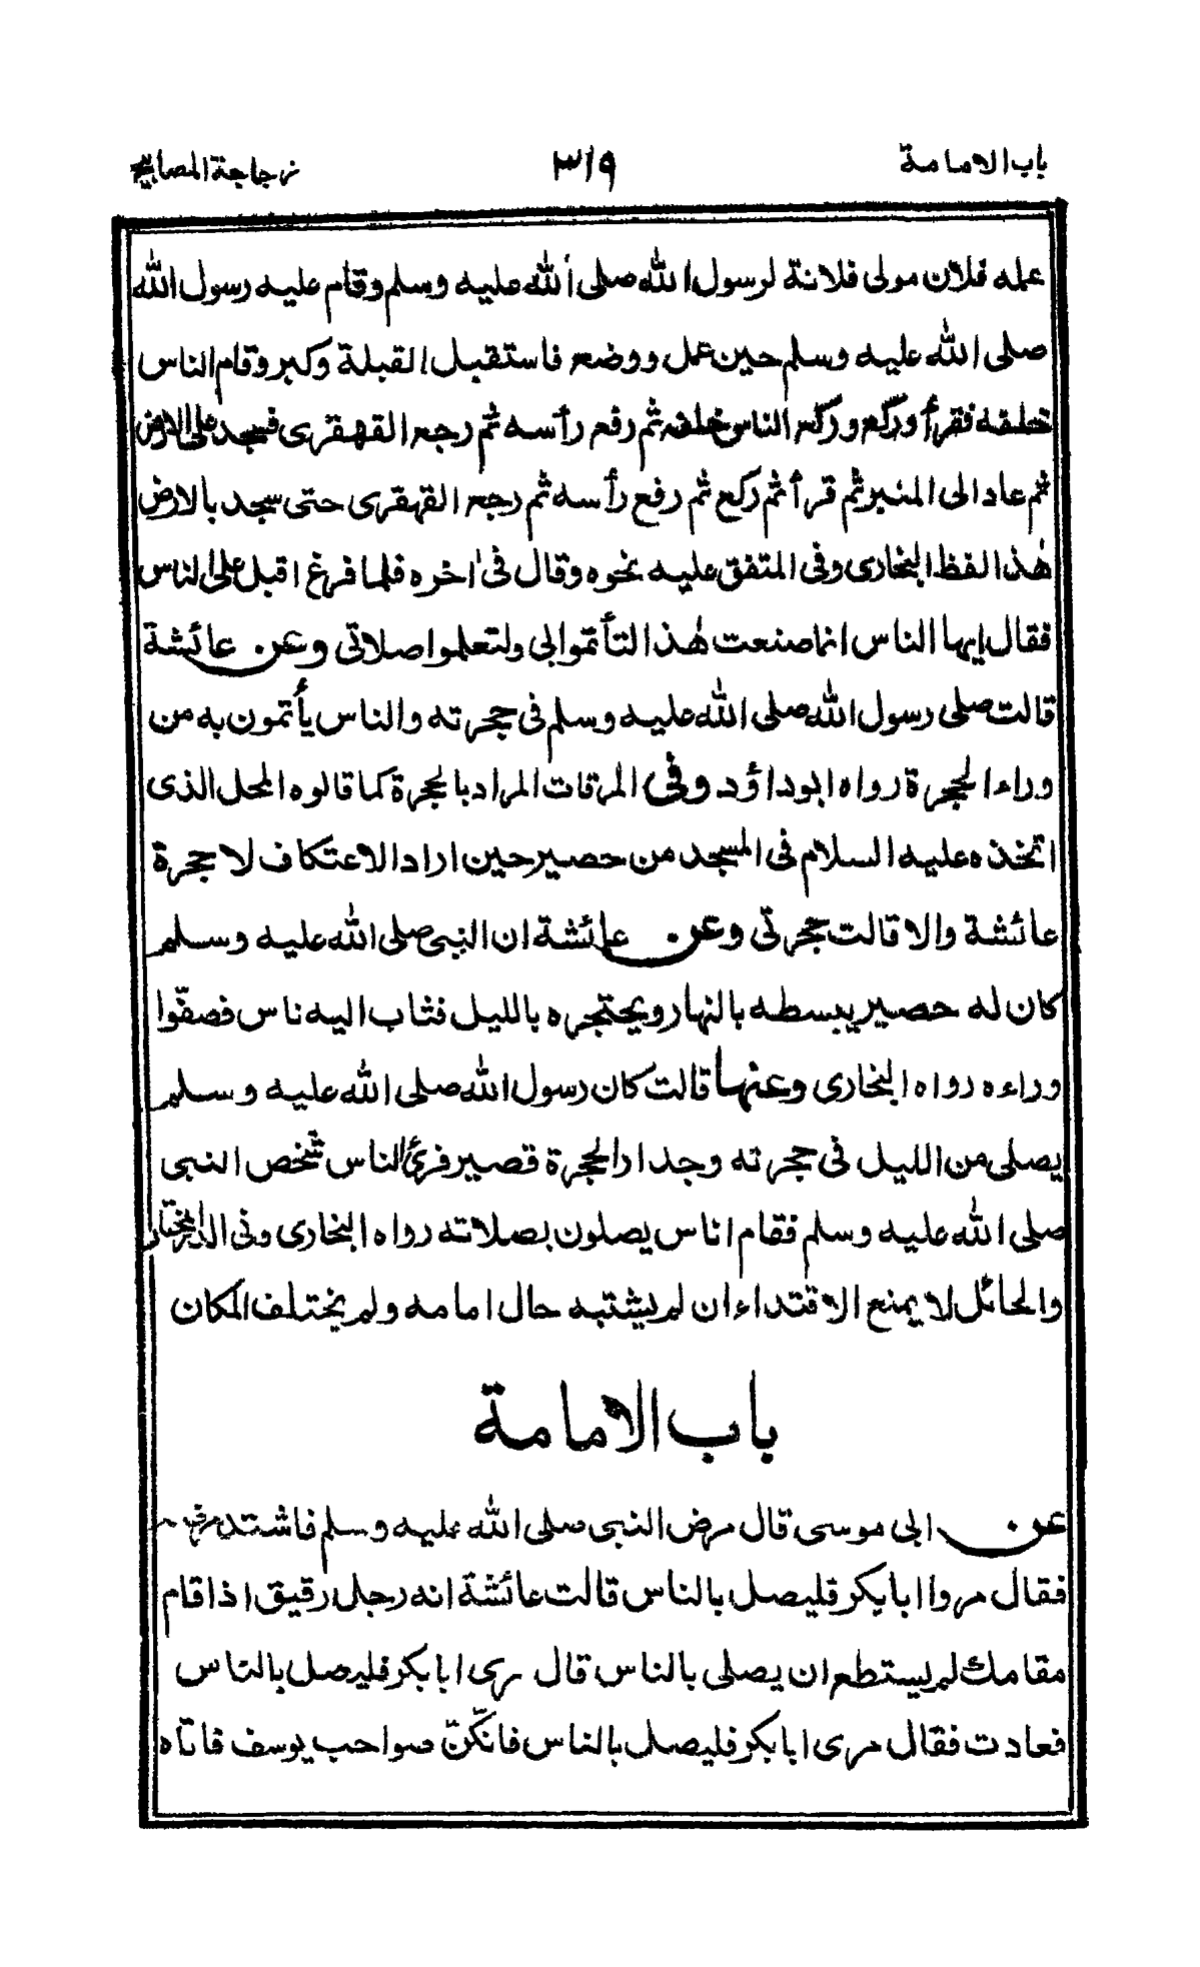 باب الامامة ٣١٩ زجاجة المصابيح
عمله فلان مولى فلانة لرسول الله صلى الله عليه وسلم وقام عليه رسول الله
صلى الله عليه وسلم حين عمل ووضع فاستقبل القبلة وكبر وقام الناس
خلفه فقرأ وركع وركع الناس خلفه ثم رفع رأسه ثم رجع القهقرى فسجد على الارض
ثم عاد الى المنبر ثم قرأ ثم ركع ثم رفع رأسه ثم رجع القهقرى حتى سجد بالارض
هٰذا لفظ البخارى وفى المتفق عليه نحوه وقال فى اٰخره فلما فرغ اقبل على الناس
فقال ايها الناس انما صنعت هٰذا لتأتموا بى ولتعلموا صلاتى وعن عائشة
قالت صلى رسول الله صلى الله عليه وسلم فى حجرته والناس يأتمون به من
وراء الحجرة رواه ابوداؤد وفى المرقات المراد بالحجرة كما قالوه المحل الذى
اتخذه عليه السلام فى المسجد من حصير حين اراد الاعتكاف لا حجرة
عائشة والا قالت حجرتى وعن عائشة ان النبى صلى الله عليه وسلم
كان له حصير يبسطه بالنهار ويحتجره بالليل فثاب اليه ناس فصفّوا
وراءه رواه البخارى وعنها قالت كان رسول الله صلى الله عليه وسلم
يصلى من الليل فى حجرته وجدار الحجرة قصير فرئ الناس شخص النبى
صلى الله عليه وسلم فقام اناس يصلون بصلاته رواه البخارى وفى الدر المختار
والحائل لا يمنع الاقتداء ان لم يشتبه حال امامه ولم يختلف المكان
باب الامامة
عن ابى موسى قال مرض النبى صلى الله عليه وسلم فاشتد مرضه
فقال مروا ابابكر فليصل بالناس قالت عائشة انه رجل رقيق اذا قام
مقامك لم يستطع ان يصلى بالناس قال مرى ابابكر فليصل بالناس
فعادت فقال مرى ابابكر فليصل بالناس فانكنّ صواحب يوسف فاتاه